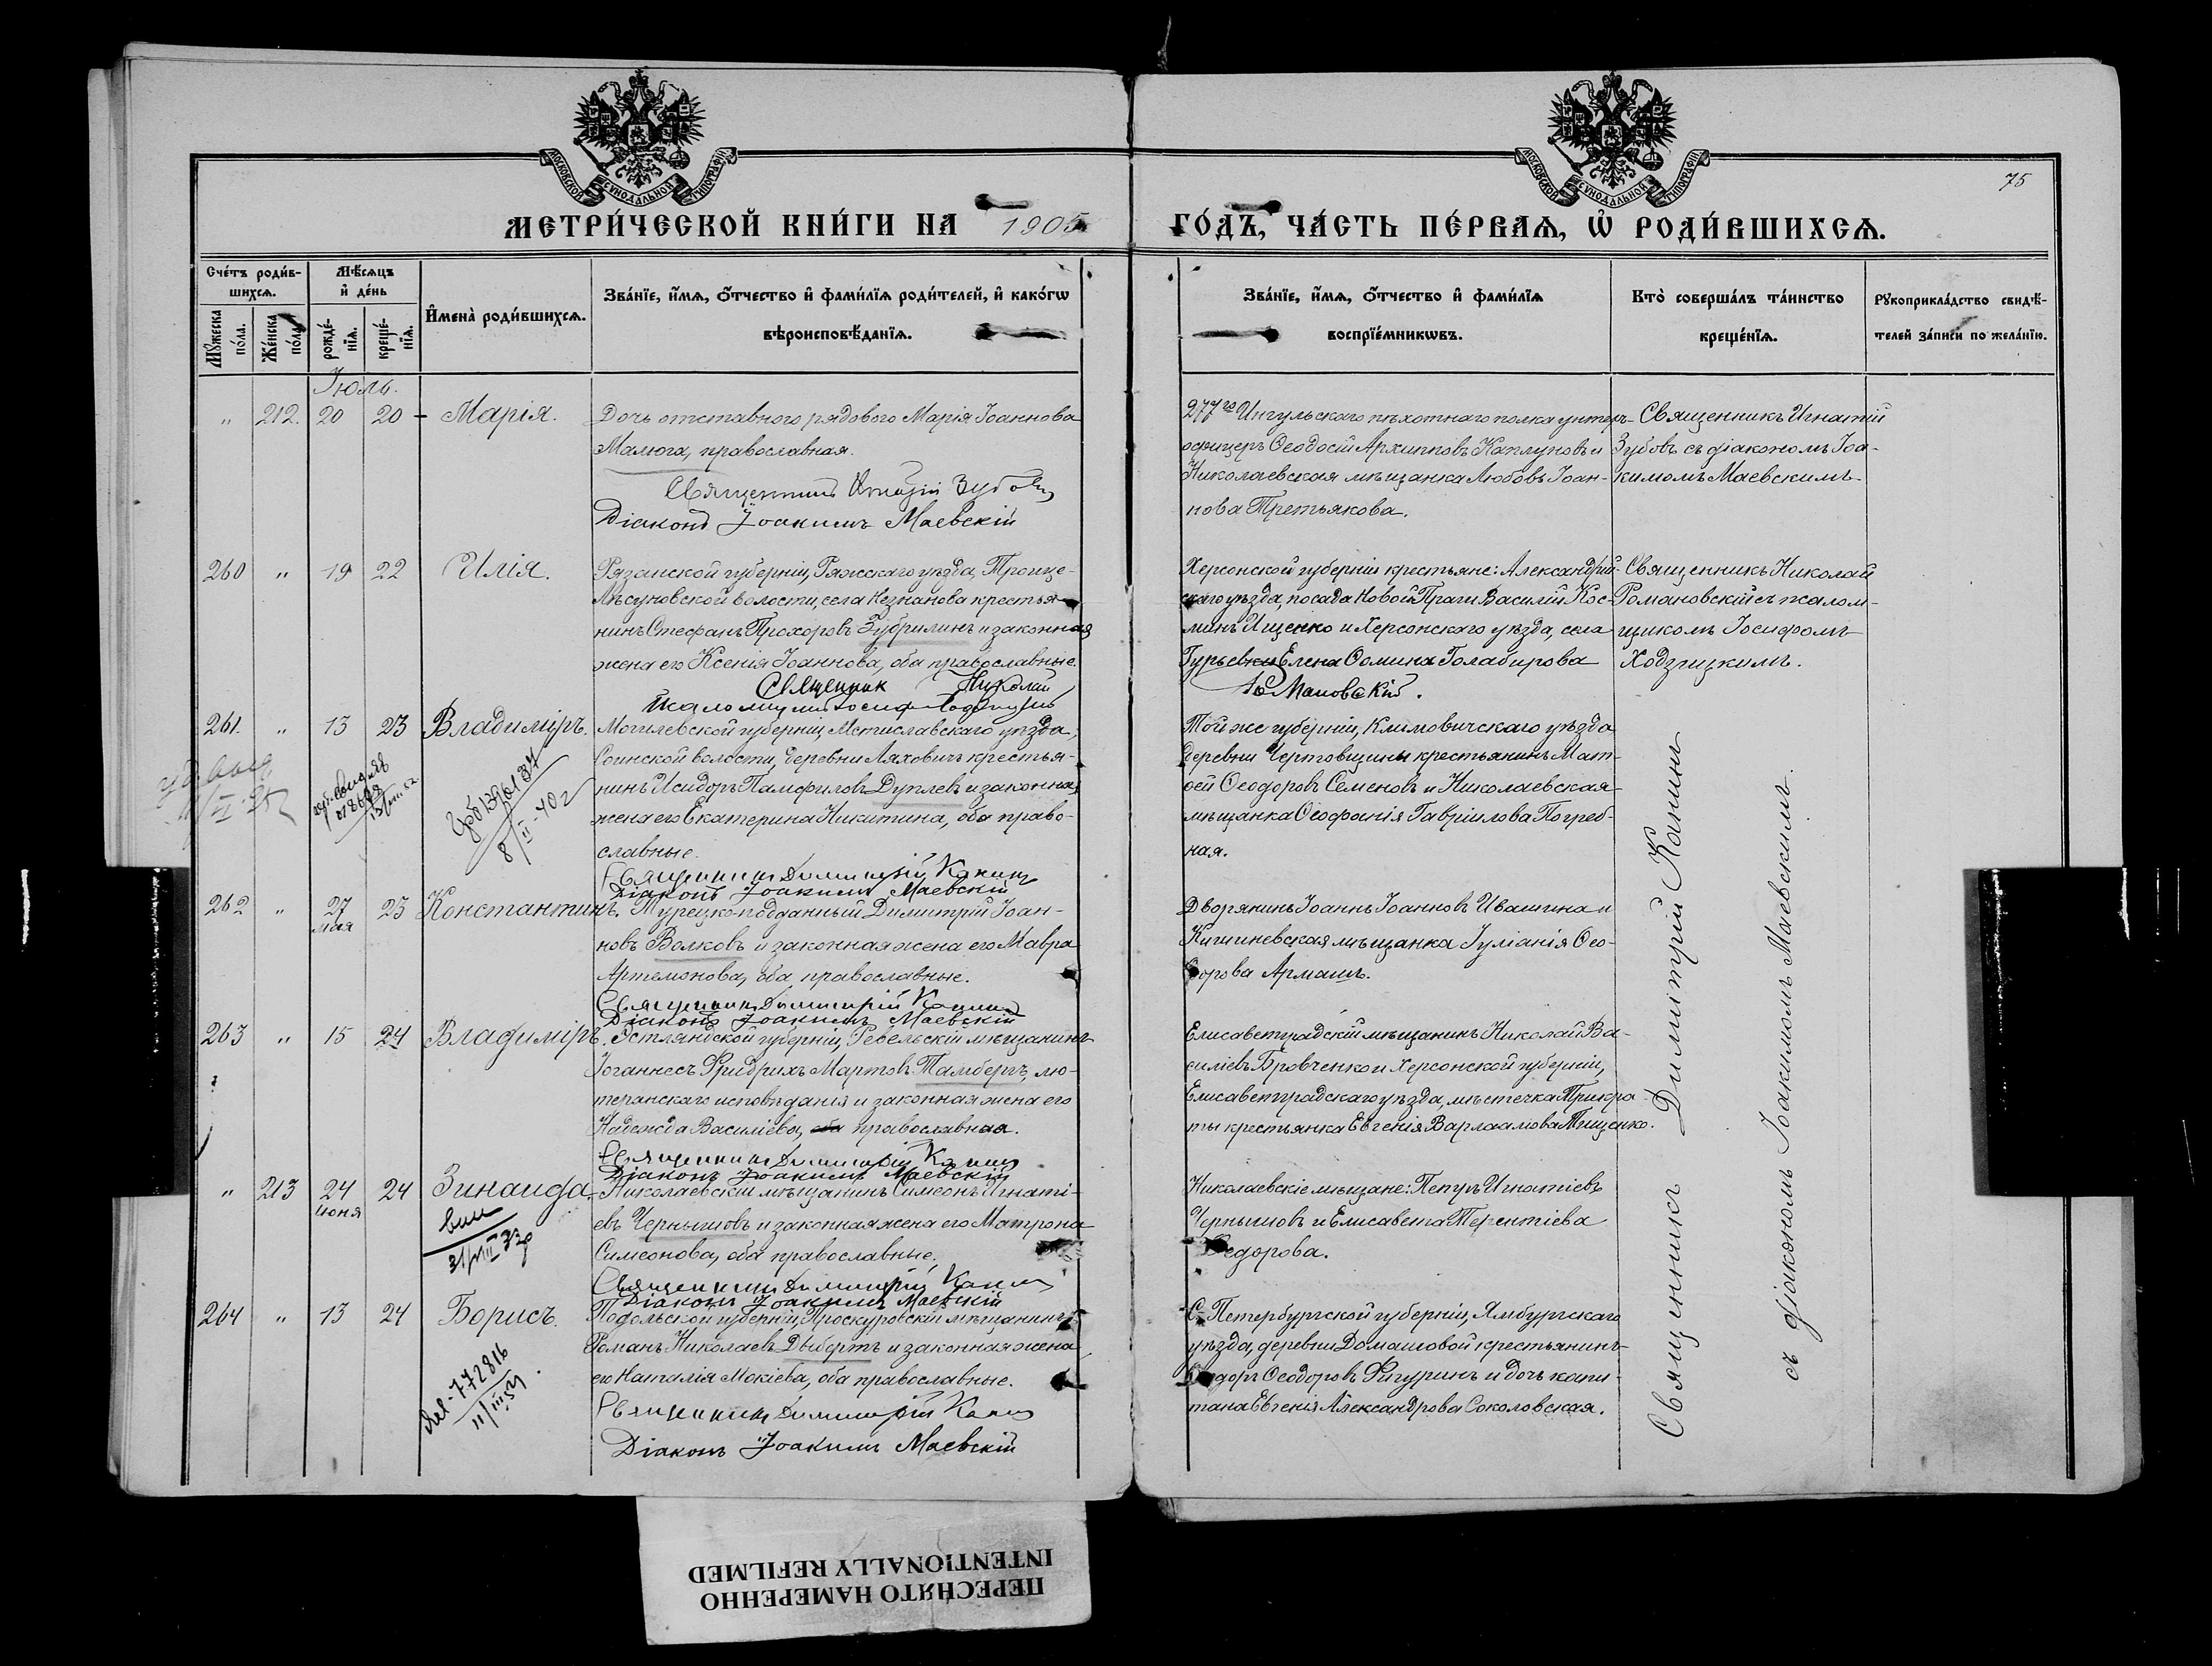 МОСКОВСКОЙ СѴНОДАЛЬНОЙ ТИПОГРАФІИ
МОСКОВСКОЙ СѴНОДАЛЬНОЙ ТИПОГРАФІИ
75
МЕТРИ́ЧЕСКОЙ КНИ́ГИ НА 1905 ГО́ДЪ, ЧА́СТЬ ПЕ́РВАѦ, Ѡ҆ РОДИ́ВШИХСѦ.
Сче́тъ роди́в-
шихсѧ.
Мꙋ́жеска по́ла.
Же́нска по́ла.
Мѣ́сѧцъ
и҆ де́нь
рожде́-
нїѧ.
креще́-
нїѧ.
И҆мена̀ роди́вшихсѧ.
Зва́нїе, и҆́мѧ, ѻ҆́тчество и҆ фами́лїѧ роди́телей, и҆ како́гѡ
вѣроисповѣ́данїѧ.
Зва́нїе, и҆́мѧ, ѻ҆́тчество и҆ фами́лїѧ
воспрїе́мникѡвъ.
Кто̀ соверша́лъ та́инство
креще́нїѧ.
Рꙋкоприкла́дство свидѣ́-
телей за́писи по жела́нїю.
Іюль.
" 212. 20 20 Марія.
Дочь отставного рядового Марія Іоаннова
Малюга, православная.
Священникъ Игнатій Зубовъ
Діаконъ Іоакимъ Маевскій
277го Ингульскаго пѣхотнаго полка унтеръ-
офицеръ Ѳеодосій Архиповъ Каплуновъ и
Николаевская мѣщанка Любовь Іоан-
нова Третьякова.
Священникъ Игнатій
Зубовъ съ діакономъ Іоа-
кимомъ Маевскимъ
260 " 19 22 Илія.
Рязанской губерніи, Ряжскаго уѣзда, Троице-
Лѣсуновской волости, села Незнанова крестья-
нинъ Стефанъ Прохоровъ Зубрилинъ и законная
жена его Ксенія Іоаннова, оба православные.
Священник Николай
Романовскій.
Херсонской губерніи крестьяне: Александрій-
скаго уѣзда, посада Новой Праги Василій Кос-
минъ Ищенко и Херсонскаго уѣзда, села
Гурьевки Елена Ѳомина Голабирова
Священникъ Николай
Романовскій съ псалом-
щикомъ Іосифомъ
Ходзицкимъ.
261. " 13 23 Владиміръ.
Могилевской губерніи, Мстиславскаго уѣзда,
Соинской волости, деревни Ляховичъ крестья-
нинъ Исидоръ Памфиловъ Дуплевъ и законная
жена его Екатерина Никитина, оба право-
славные.
Священникъ Димитрій Канинъ
Діаконъ Іоакимъ Маевскій
Той же губерніи, Климовичскаго уѣзда
деревни Чертовщины крестьянинъ Мат-
ѳей Ѳеодоровъ Семеновъ и Николаевская
мѣщанка Ѳеофанія Гавріилова Погреб-
ная.
8/II-40г
262 " 27 мая 23 Константинъ.
Турецко-подданный Димитрій Іоан-
новъ Волковъ и законная жена его Мавра
Артемонова, оба православные.
Священникъ Димитрій Канинъ
Діаконъ Іоакимъ Маевскій
Дворянинъ Іоаннъ Іоанновъ Ивашина и
Кишиневская мѣщанка Іуліанія Ѳео-
дорова Армашъ.
263 " 15 24 Владиміръ.
Эстляндской губерніи, Ревельскій мѣщанинъ
Іоганнесъ Фридрихъ Мартовъ Тамбергъ, лю-
теранскаго исповѣданія и законная жена его
Надежда Василіева, оба православная.
Священникъ Димитрій Канинъ
Діаконъ Іоакимъ Маевскій
Елисаветградскій мѣщанинъ Николай Ва-
силіевъ Бровченко и Херсонской губерніи,
Елисаветградскаго уѣзда, мѣстечка Трикра-
ты крестьянка Евгенія Варлаамова Тищенко.
" 213 24 іюня 24 Зинаида
Николаевскій мѣщанинъ Симеонъ Игнаті-
евъ Чернышовъ и законная жена его Матрона
Симеонова, оба православные.
Священникъ Димитрій Канинъ
Діаконъ Іоакимъ Маевскій
Николаевскіе мѣщане: Петръ Игнатіевъ
Чернышовъ и Елисавета Терентіева
Ѳедорова.
264 " 13 24 Борисъ.
Подольской губерніи, Проскуровскій мѣщанинъ
Романъ Николаевъ Дыбертъ и законная жена
его Наталія Мокіева, оба православные.
Священникъ Димитрій Канинъ
Діаконъ Іоакимъ Маевскій
С.-Петербургской губерніи, Ямбургскаго
уѣзда, деревни Домашовой крестьянинъ
Ѳедоръ Ѳеодоровъ Фигуринъ и дочь капи-
тана Евгенія Александрова Соколовская.
772816
11/III 51.
Священникъ Димитрій Канинъ
съ діакономъ Іоакимомъ Маевскимъ.
ПЕРЕСНЯТО НАМЕРЕННО
INTENTIONALLY REFILMED